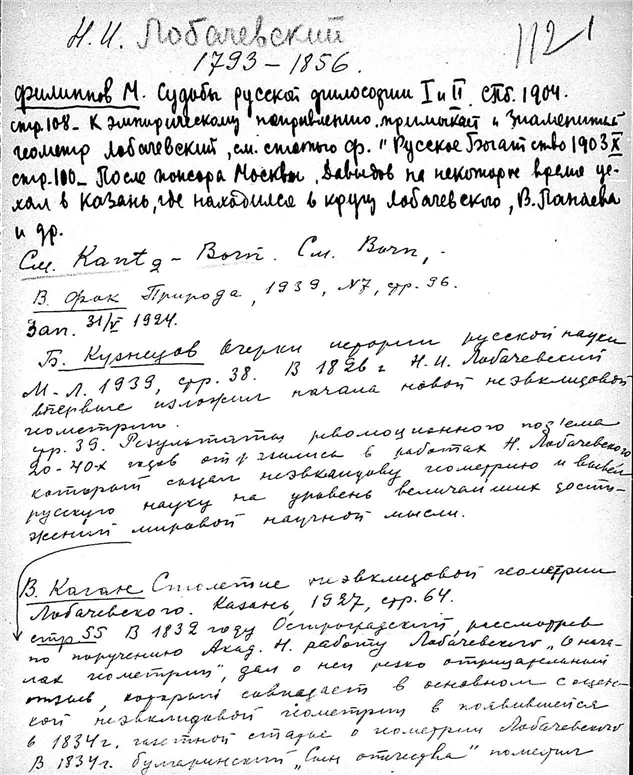 Н.И. Лобачевский
112 1
1793 – 1856.
Филиппов М. Судьбы русской философии I и II. СПб. 1904.
стр. 108 – К эмпирическому направлению примыкает и знаменитый
геометр Лобачевский, см. статью Ф. "Русское Богатство 1903 X
стр. 100 – После пожара Москвы, Давыдов на некоторое время уе-
хал в Казань, где находился в кругу Лобачевского, В. Панаева
и др.
См. Kant – Born. См. Born, –
В. Фок Природа, 1939, N7, стр. 96.
Зап. 31/V 1924.
Б. Кузнецов Очерки истории русской науки
М-Л. 1939, стр. 38. В 1826 г Н.И. Лобачевский
впервые изложил начала новой неэвклидовой
геометрии.
стр. 39. Результаты революционного под'ема
20-40х годов отразились в работах Н. Лобачевского
который создал неэвклидову геометрию и вывел
русскую науку на уровень величайших дости-
жений мировой научной мысли.
В. Каган Столетие неэвклидовой геометрии
Лобачевского. Казань, 1927, стр. 64.
стр 55 В 1832 году Остроградский, рассмотрев
по поручению Акад. Н. работу Лобачевского „О нача-
лах геометрии", дал о ней резко отрицательный
отзыв, который совпадает в основном с оцен-
кой неэвклидовой геометрии в появившейся
в 1834 г. статье о геометрии Лобачевского
В 1834 г. булгаринский „Сын отечества" поместил